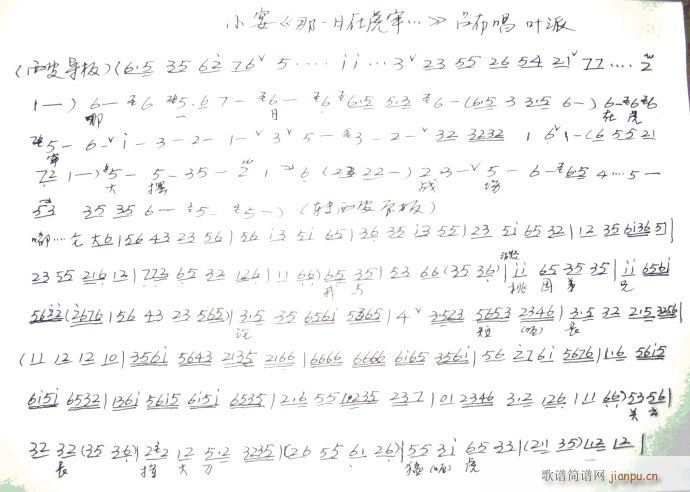 小宴《那一日在虎牢…》吕布唱 叶派
(西皮导板) (6·5 35 6i 76ˇ 5···· ii···3ˇ 23 55 26 54 21ˇ 77···· 2
1—) 6— 6 5·6 7— 6— 6 6·5 5·3 6—(6·5 3 3·5 6—) 6—6 6
哪 一 日 在 虎
5— 6—ˇi—3—2—1—ˇ3ˇ5—3—2—ˇ32 3232 1 6ˇ1—(6 55 21
牢
72 1—) 5— 5—35—2 1 6 (22 22—) 2 3—ˇ5—6—6·5 4···5—
大 摆 战 场
53 35 35 6— 5— 5—) (转西皮原板)
嘟···仓 大6|56 43 23 56|56 i3 5i 65|36 35 i3 55|23 5i 65 32|12 35 6i36 5|
23 55 216 12|772 65 32 126|11 66) 65 35|53 66 (35 36)|ii 65 35 35|ii 656i
我 与 桃 园 弟 兄
56 22 (2676|56 43 23 565)|3·5 35 656i 5365|4ˇ3523 5653 2346|3·5 32 215 3256|
论 短 (啊) 长
(11 12 12 10|356i 5643 2135 2166|6666 6666 6i65 356i|56 276i 5676|116 56i5
6i5i 6532|136i 56i5 6i5i 6535|216 55 10235 237|01 2346 3·2 126|11 66) 53 56|
关 云
32 32 (35 36)|22 12 5·2 3235|(26 55 61 26)|55 3i 65 33|(21 35) 12 12|
长 摆 大 刀 猛 (啊) 虎
歌谱简谱网
jianpu.cn